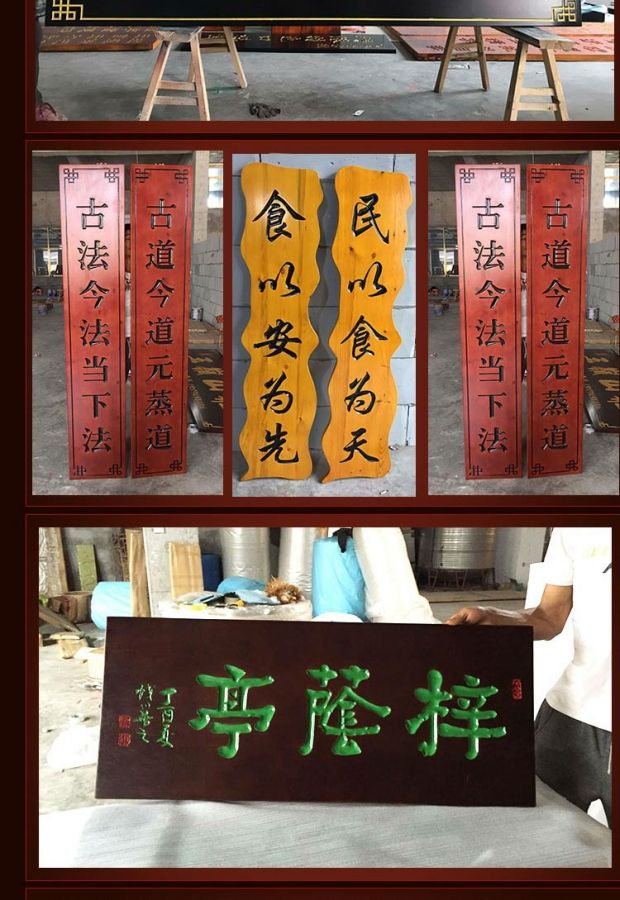 古道今道元蒸道
古法今法当下法
民以食为天
食以安为先
古道今道元蒸道
古法今法当下法
梓蔭亭
丁酉夏